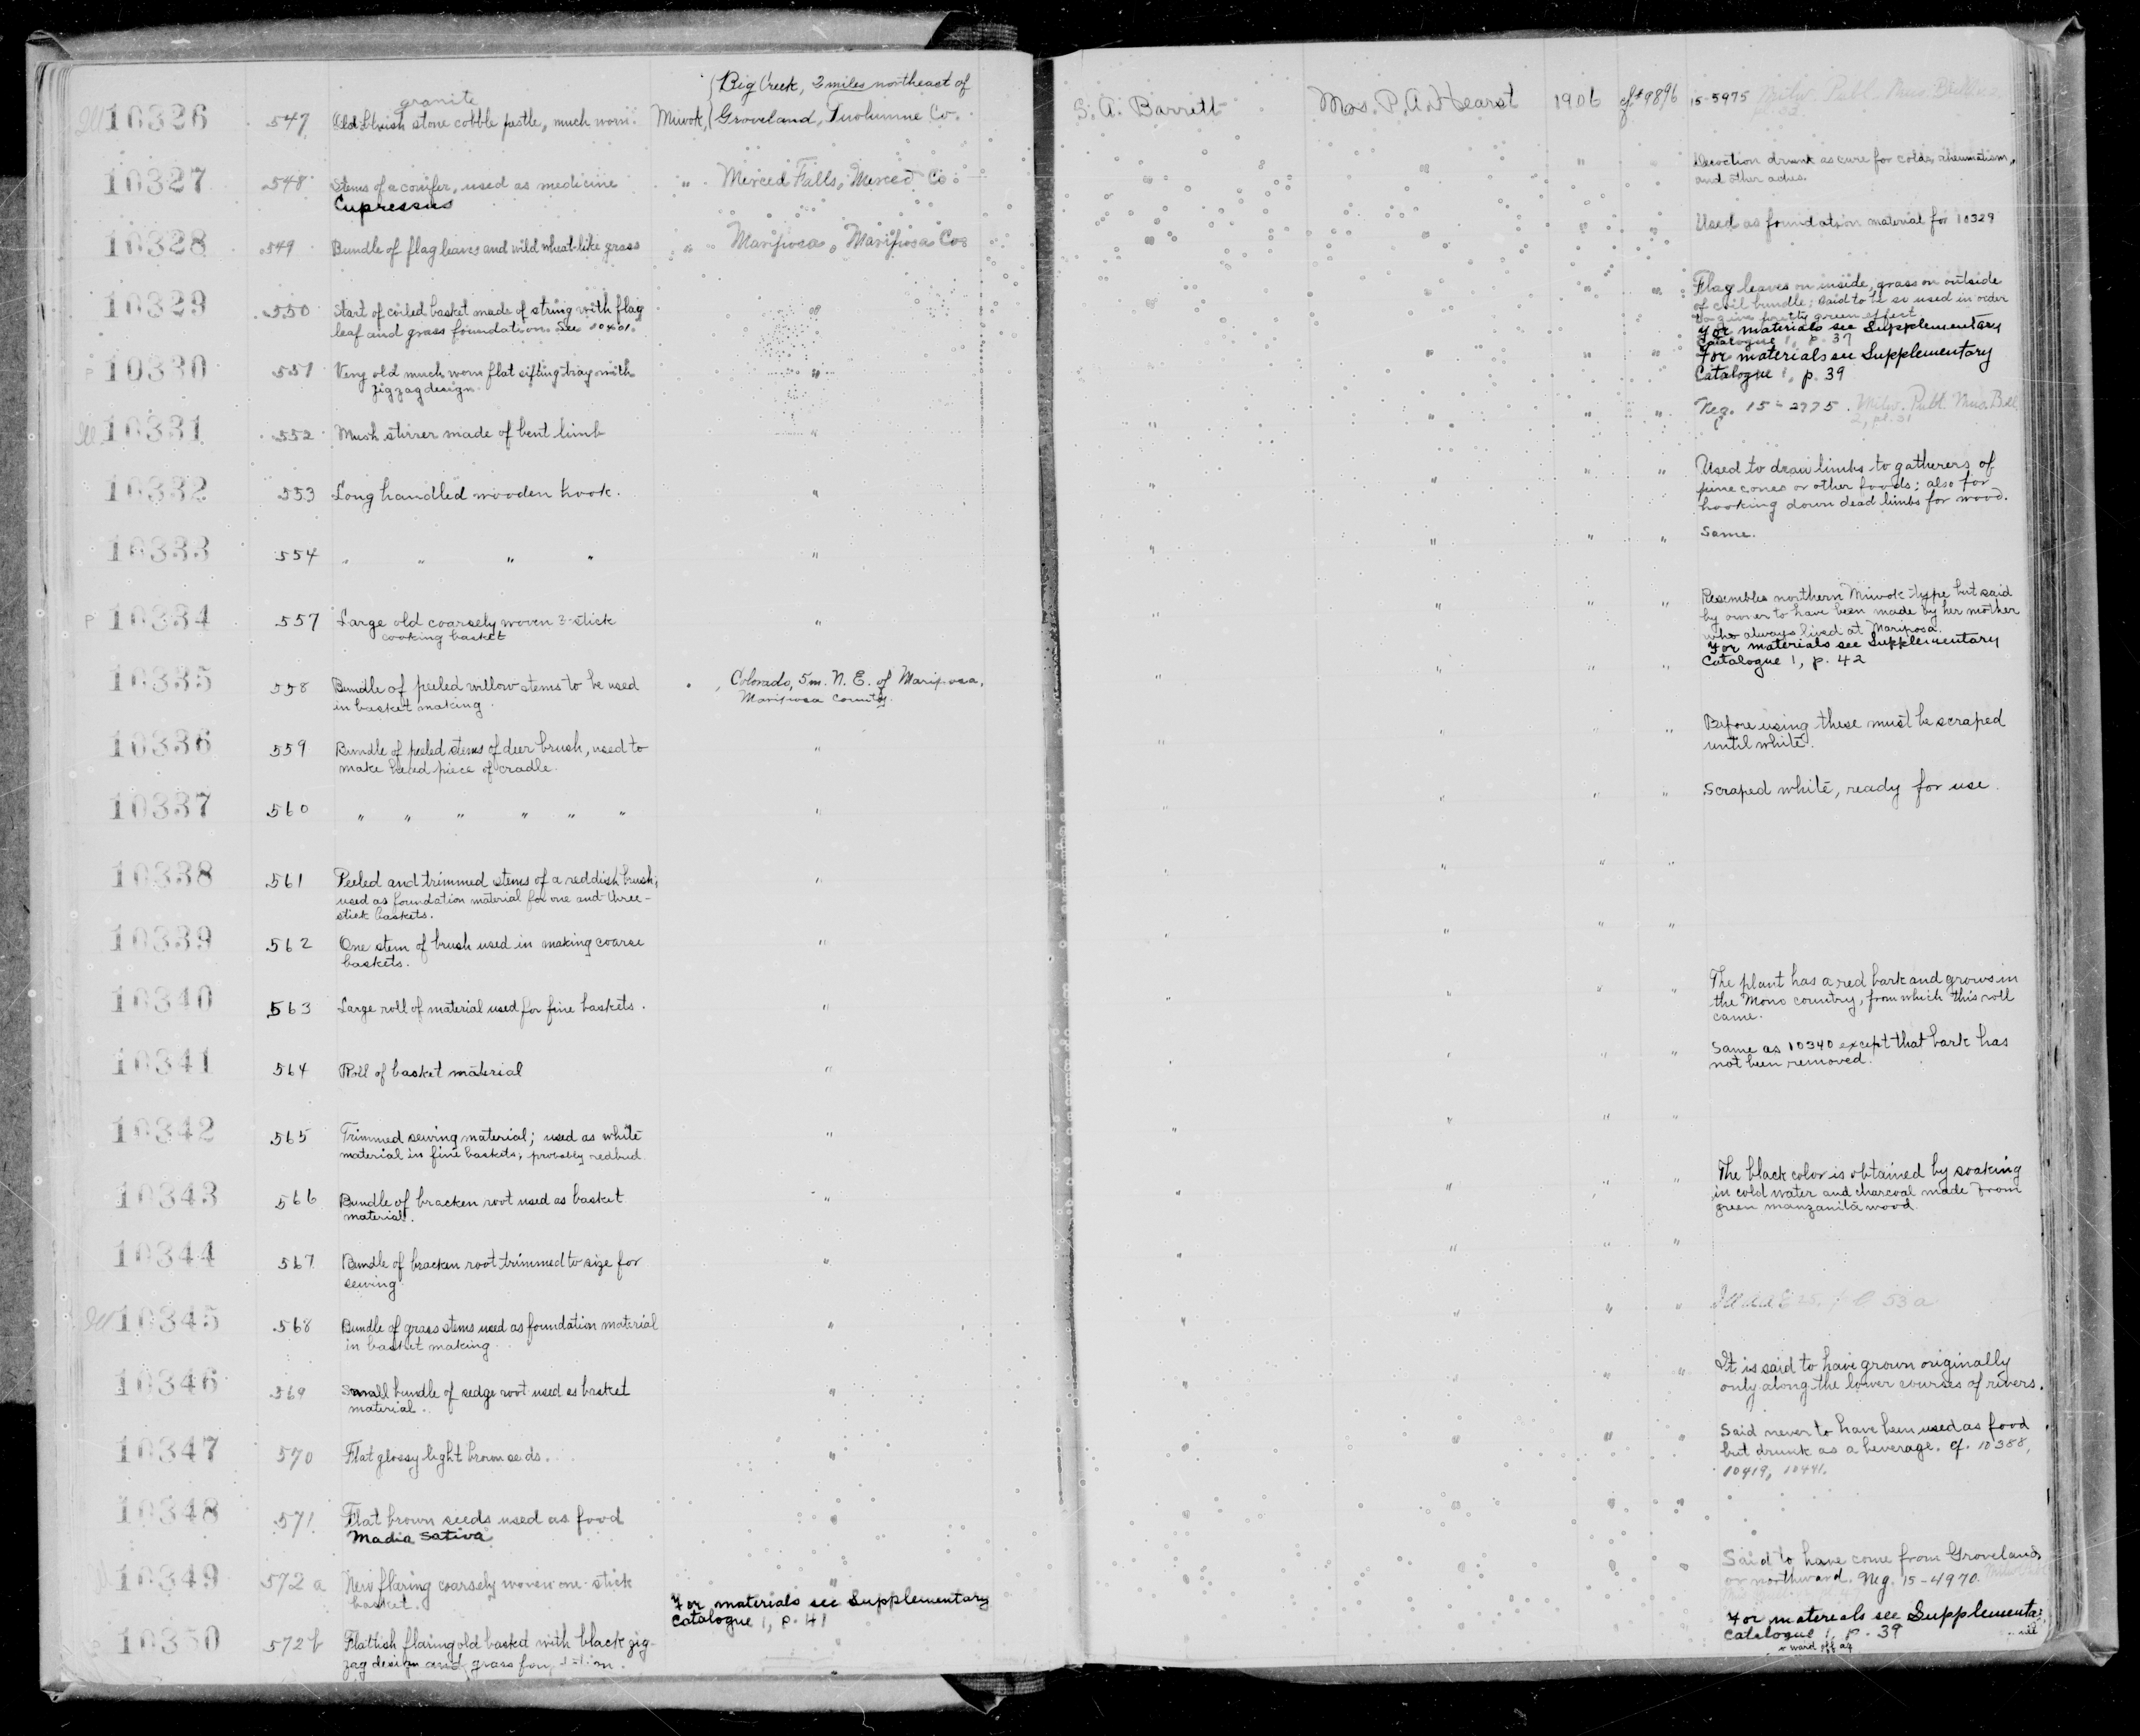 granite (Big Creek, 2 miles northeast of
Ill 10326 547 Old bluish stone cobble pestle, much worn. Miwok, (Groveland, Tuolumne Co. S. A. Barrett Mrs. P. A. Hearst 1906 9896 15-5975 Milw. Publ. Mus. Bull. 2
Decoction drunk as cure for colds, rheumatism,
and other aches.
10327 548 Stems of a conifer, used as medicine " Merced Falls, Merced Co. " "
Cupressus
Used as foundation material for 10329
10328 549 Bundle of flag leaves and wild wheat-like grass " Mariposa, Mariposa Co. " "
Flag leaves on inside, grass on outside
of coil bundle; said to be so used in order
to give pretty green effect.
For materials see Supplementary
Catalogue 1, p. 37
10329 550 Start of coiled basket made of string with flag " " "
leaf and grass foundation. See
For materials see Supplementary
Catalogue 1, p. 39
P 10330 551 Very old much worn flat sifting tray with " " "
zigzag design.
Neg. 15-2775. Milw. Publ. Mus. Bull.
2, pl. 31
Ill 10331 552 Mush stirrer made of bent limb " " " " "
Used to draw limbs to gatherers of
pine cones or other foods; also for
hooking down dead limbs for wood.
10332 553 Long handled wooden hook. " " " " "
Same.
10333 554 " " " " " " " " "
Resembles northern Miwok type but said
by owner to have been made by her mother
who always lived at Mariposa.
For materials see Supplementary
Catalogue 1, p. 42
P 10334 557 Large old coarsely woven 3-stick " " " " "
cooking basket
10335 558 Bundle of peeled willow stems to be used " Colorado, 5 m. N. E. of Mariposa, " " " "
in basket making. Mariposa County.
Before using these must be scraped
until white.
10336 559 Bundle of peeled stems of deer brush, used to " " " " "
make head piece of cradle.
Scraped white, ready for use.
10337 560 " " " " " " " " " " "
10338 561 Peeled and trimmed stems of a reddish brush; " " " " "
used as foundation material for one and three-
stick baskets.
10339 562 One stem of brush used in making coarse " " " " "
baskets.
The plant has a red bark and grows in
the Mono country, from which this roll
came.
10340 563 Large roll of material used for fine baskets. " " " " "
Same as 10340 except that bark has
not been removed.
10341 564 Roll of basket material " " " " "
10342 565 Trimmed sewing material; used as white " " " " "
material in fine baskets; probably redbud.
The black color is obtained by soaking
in cold water and charcoal made from
green manzanita wood.
10343 566 Bundle of bracken root used as basket " " " " "
material.
10344 567 Bundle of bracken root trimmed to size for " " " " "
sewing.
53 a
Ill 10345 568 Bundle of grass stems used as foundation material " " " " "
in basket making.
It is said to have grown originally
only along the lower courses of rivers.
10346 569 Small bundle of sedge root used as basket " " " "
material.
Said never to have been used as food
but drunk as a beverage. Cf. 10388,
10419, 10441.
10347 570 Flat glossy light brown seeds. " " "
10348 571 Flat brown seeds used as food "
Madia sativa
Said to have come from Groveland
or northward. Neg. 15-4970.
10349 572a New flaring coarsely woven one-stick "
basket. For materials see Supplementary
Catalogue 1, p. 41
For materials see Supplementa
Catalogue 1, p. 39
10350 572b Flattish flaring old basket with black zig- "
zag design and grass